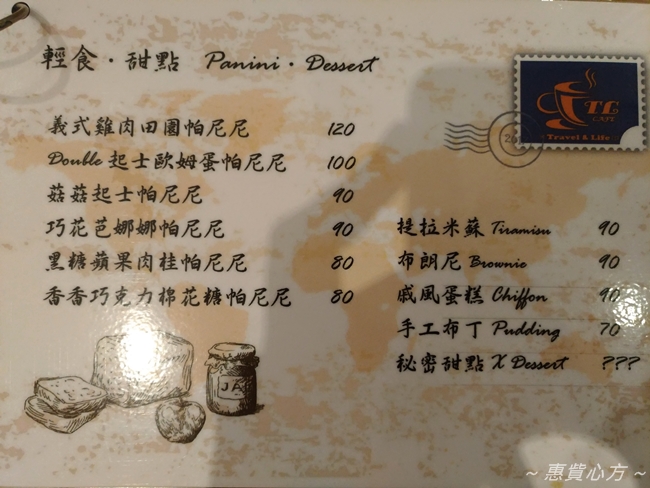 輕食·甜點 Panini·Dessert
TL
CAFE
Travel & Life
義式雞肉田園帕尼尼 120
Double起士歐姆蛋帕尼尼 100
菇菇起士帕尼尼 90
巧花芭娜娜帕尼尼 90
黑糖蘋果肉桂帕尼尼 80
香香巧克力棉花糖帕尼尼 80
提拉米蘇 Tiramisu 90
布朗尼 Brownie 90
戚風蛋糕 Chiffon 90
手工布丁 Pudding 70
秘密甜點 X Dessert ???
JAM
~ 惠貲心方 ~